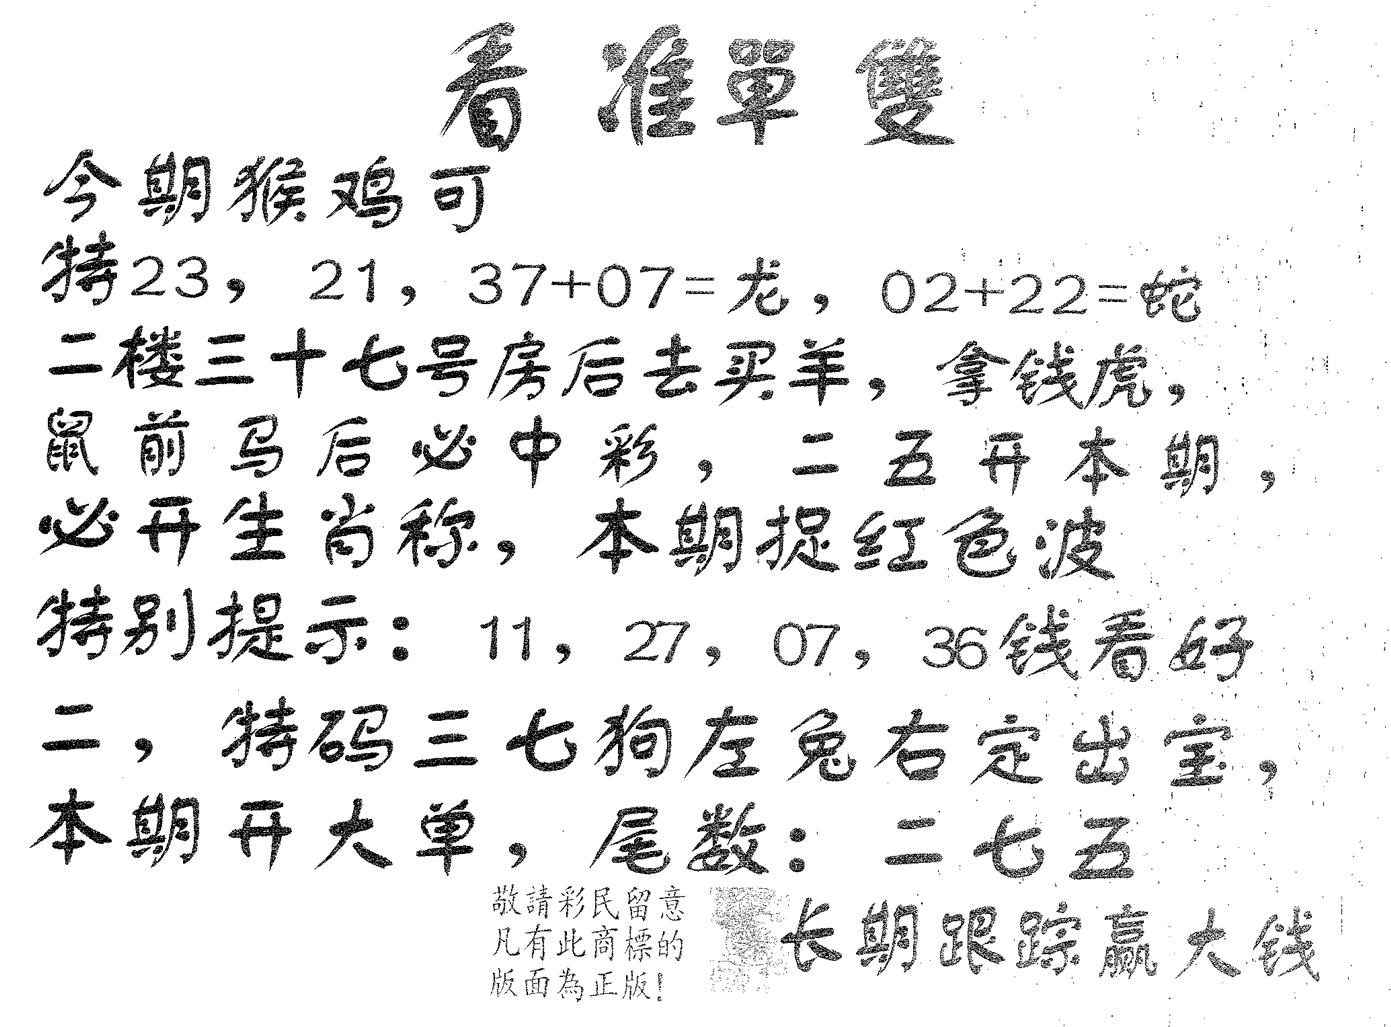 看准單雙
今期猴鸡可
特23，21，37+07=龙，02+22=蛇
二楼三十七号房后去买羊，拿钱虎，
鼠前马后必中彩，二五开本期，
必开生肖称，本期捉红色波
特别提示：11，27，07，36钱看好
二，特码三七狗左兔右定出宝，
本期开大单，尾数：二七五
敬請彩民留意
凡有此商標的
版面為正版！
长期跟踪赢大钱